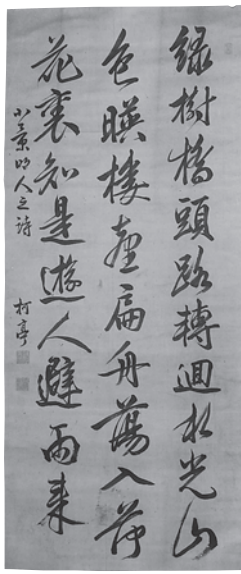 緑樹橋頭路轉迴水光山
色暎樓臺扁舟蕩入荷
花裏知是遊人避雨来
小景明人之詩 柯亭